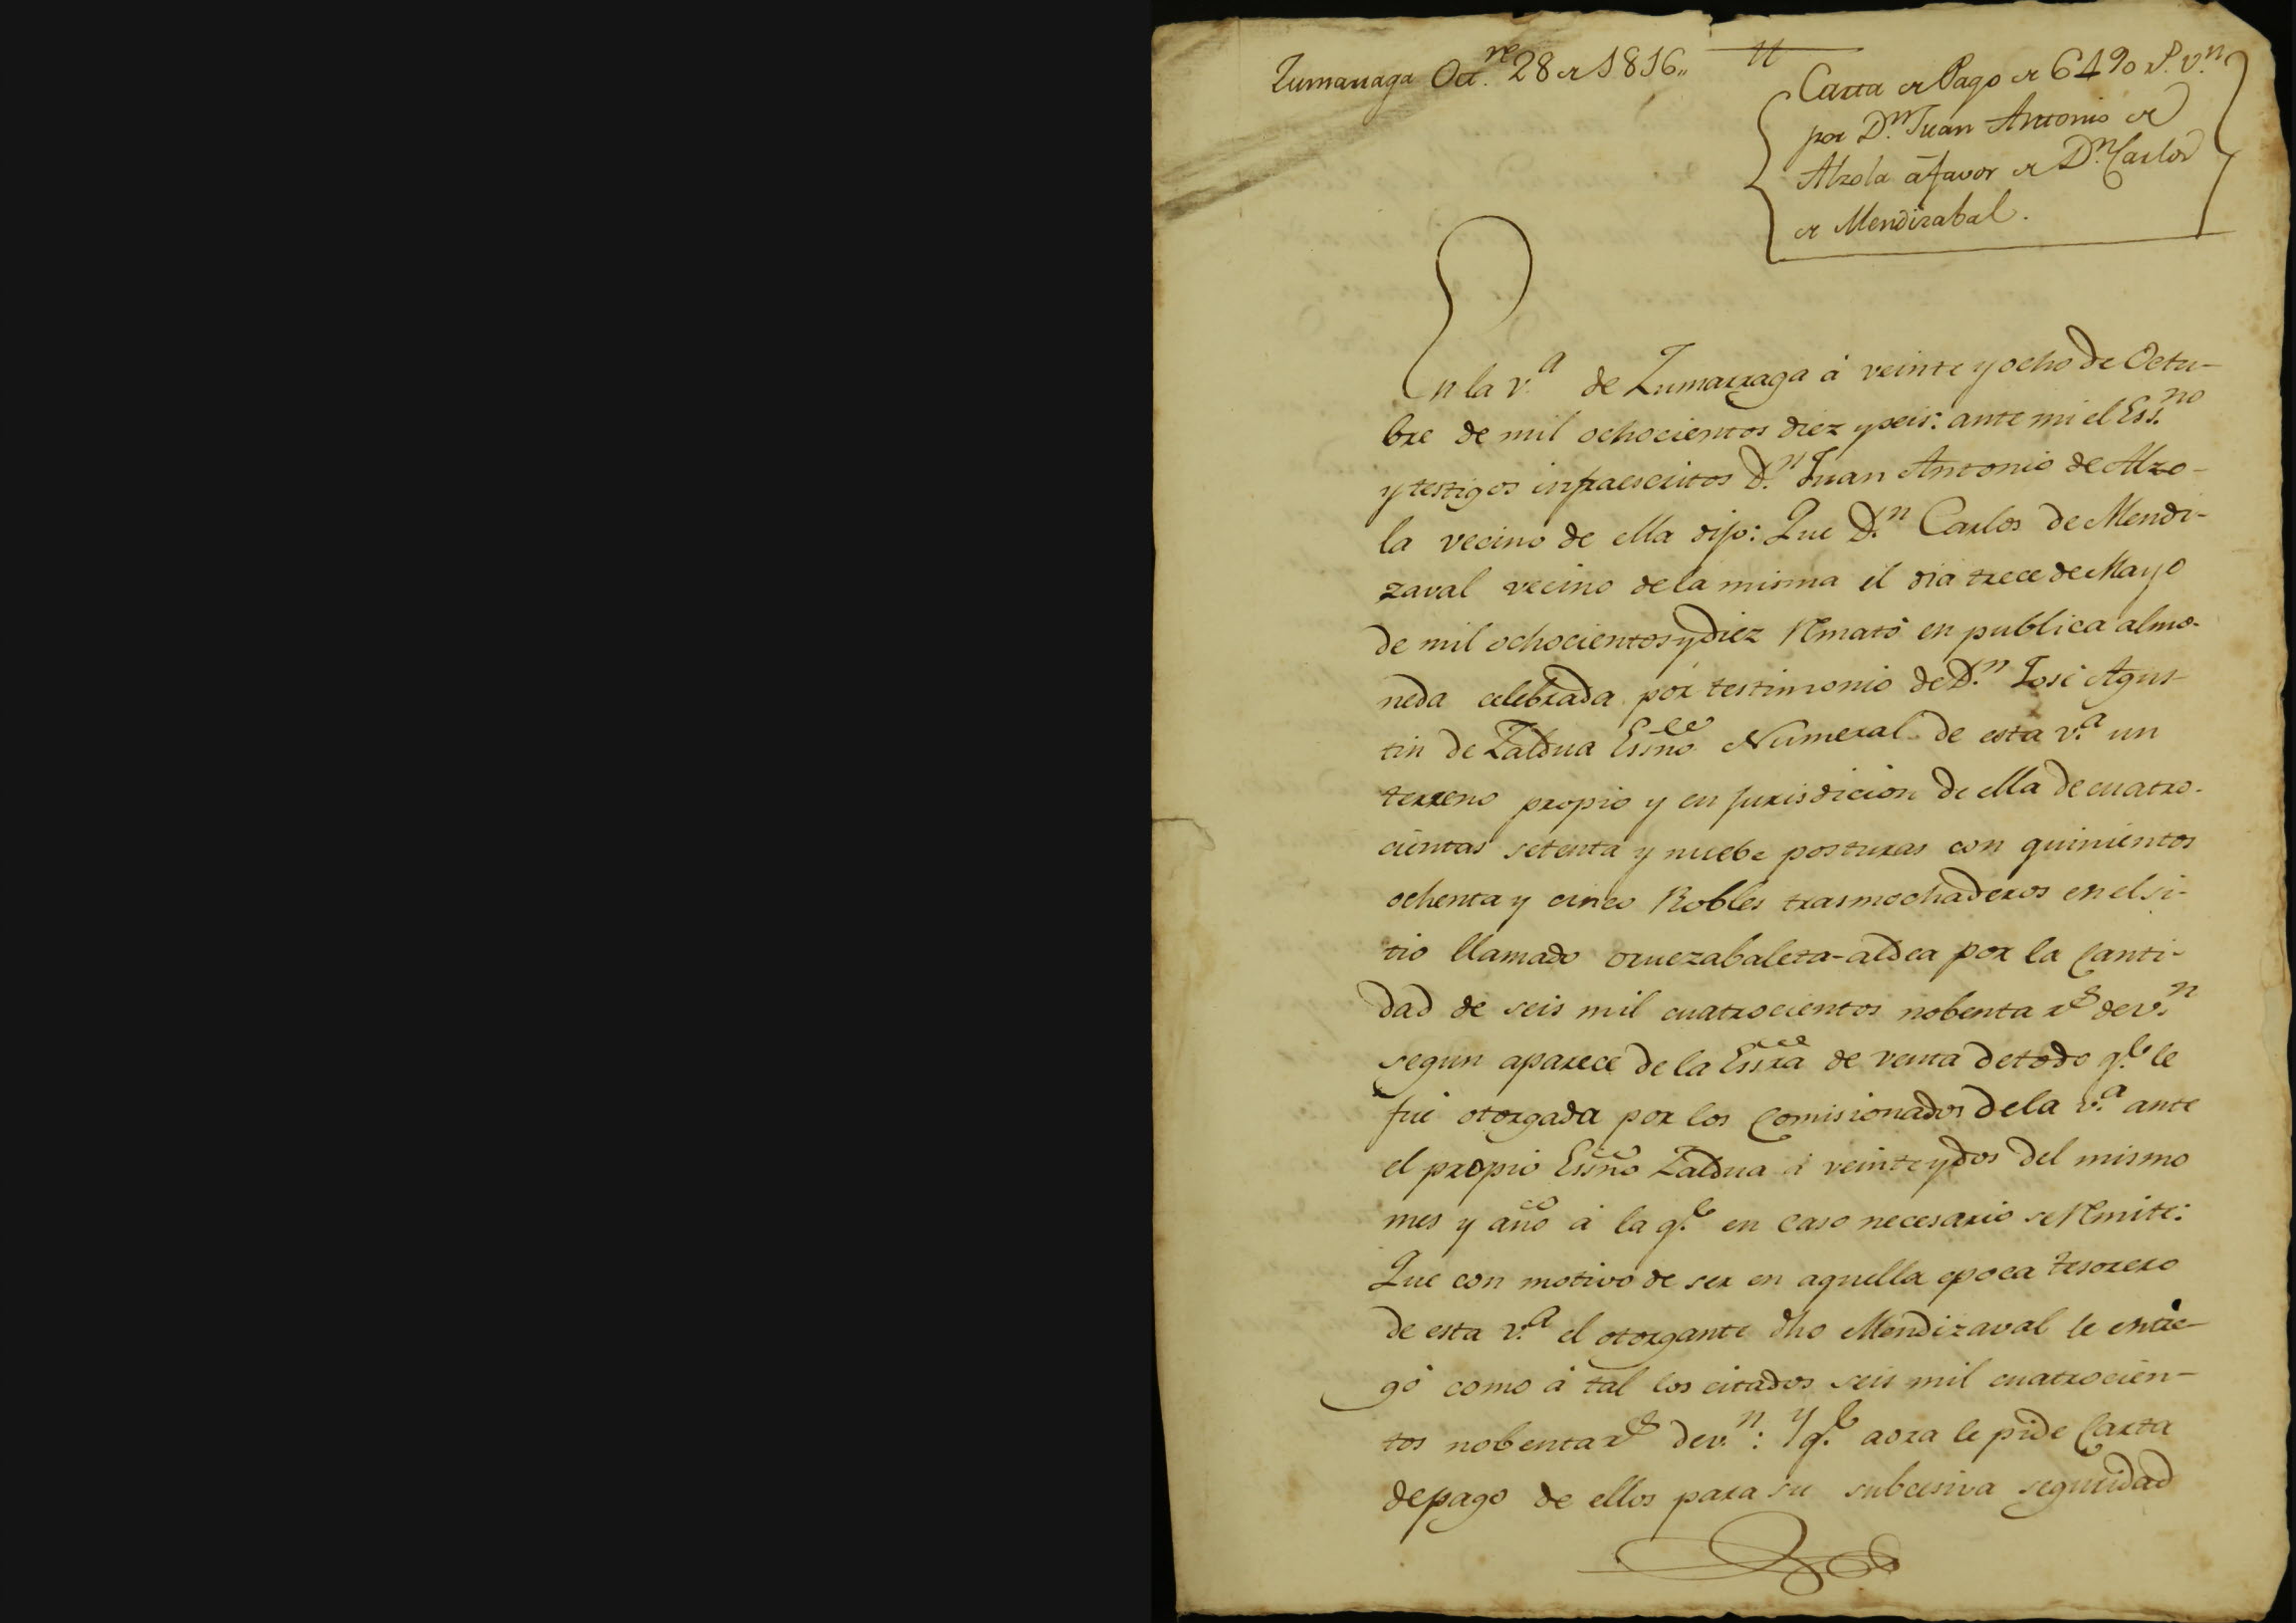 Zumarraga Oct.re 28 de 1816,,
Carta de Pago de 6490 rs. v.n
por D.n Juan Antonio de
Alzola á favor de D.n Carlos
de Mendizabal.
En la v.a de Zumarraga á veinte y ocho de Octu-
bre de mil ochocientos diez y seis: ante mi el Ess.no
y testigos infraescritos D.n Juan Antonio de Alzo-
la vecino de ella dijo: Que D.n Carlos de Mendi-
zaval vecino de la misma el dia trece de Mayo
de mil ochocientos y diez Remató en publica almo-
neda celebrada por testimonio de D.n José Agus-
tin de Zaldua Essno Numeral de esta v.a un
terreno propio y en Jurisdicion de ella de cuatro-
cientas setenta y nuebe posturas con quinientos
ochenta y cinco Robles trasmochaderos en el si-
tio llamado oruezabaleta-aldea por la Canti-
dad de seis mil cuatrocientos nobenta rs de v.n
segun aparece de la Essra de venta de todo q.e le
fué otorgada por los Comisionados de la v.a ante
el propio Essno Zaldua á veinte y dos del mismo
mes y año á la q.e en caso necesario se Remite:
Que con motivo de ser en aquella epoca tesorero
de esta v.a el otorgante dho Mendizaval le entre-
gó como á tal los citados seis mil cuatrocien-
tos nobenta rs de v.n: Y q.e aora le pide Carta
de pago de ellos para su subcesiva seguridad